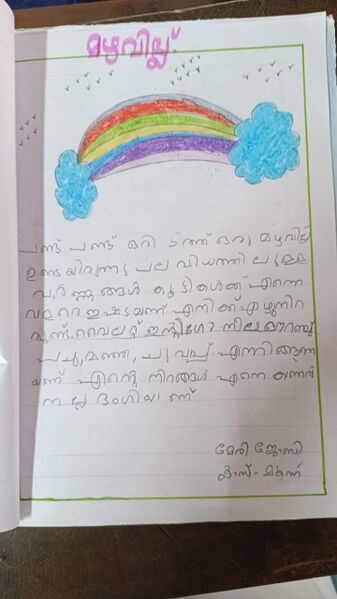 മഴവില്ല്
പണ്ട് പണ്ട് ഒരി ടത്ത് ഒരു മഴവില്ല്
ഉണ്ടയിരുന്നു പല വിധത്തി ലുള്ള
വർണ്ണങ്ങൾ കൂട്ടികൾക്ക് എന്നെ
വളറെ ഇഷ്ടമണ് എനിക്ക് ഏഴുനിറ
മുണ്ട്. വൈലറ്റ് ഇൻ്റിഗോ നീല ഓറഞ്ച്
പച്ച, മഞ്ഞ, ചുവപ്പ് എന്നിങ്ങനെ
യണ് എൻ്റെ നിറങ്ങൾ എന്നെ കണൻ
ന ല്ല ഭംഗിയ ണ്
മേരി ജോബി
ക്ലാസ് - മൂന്ന്